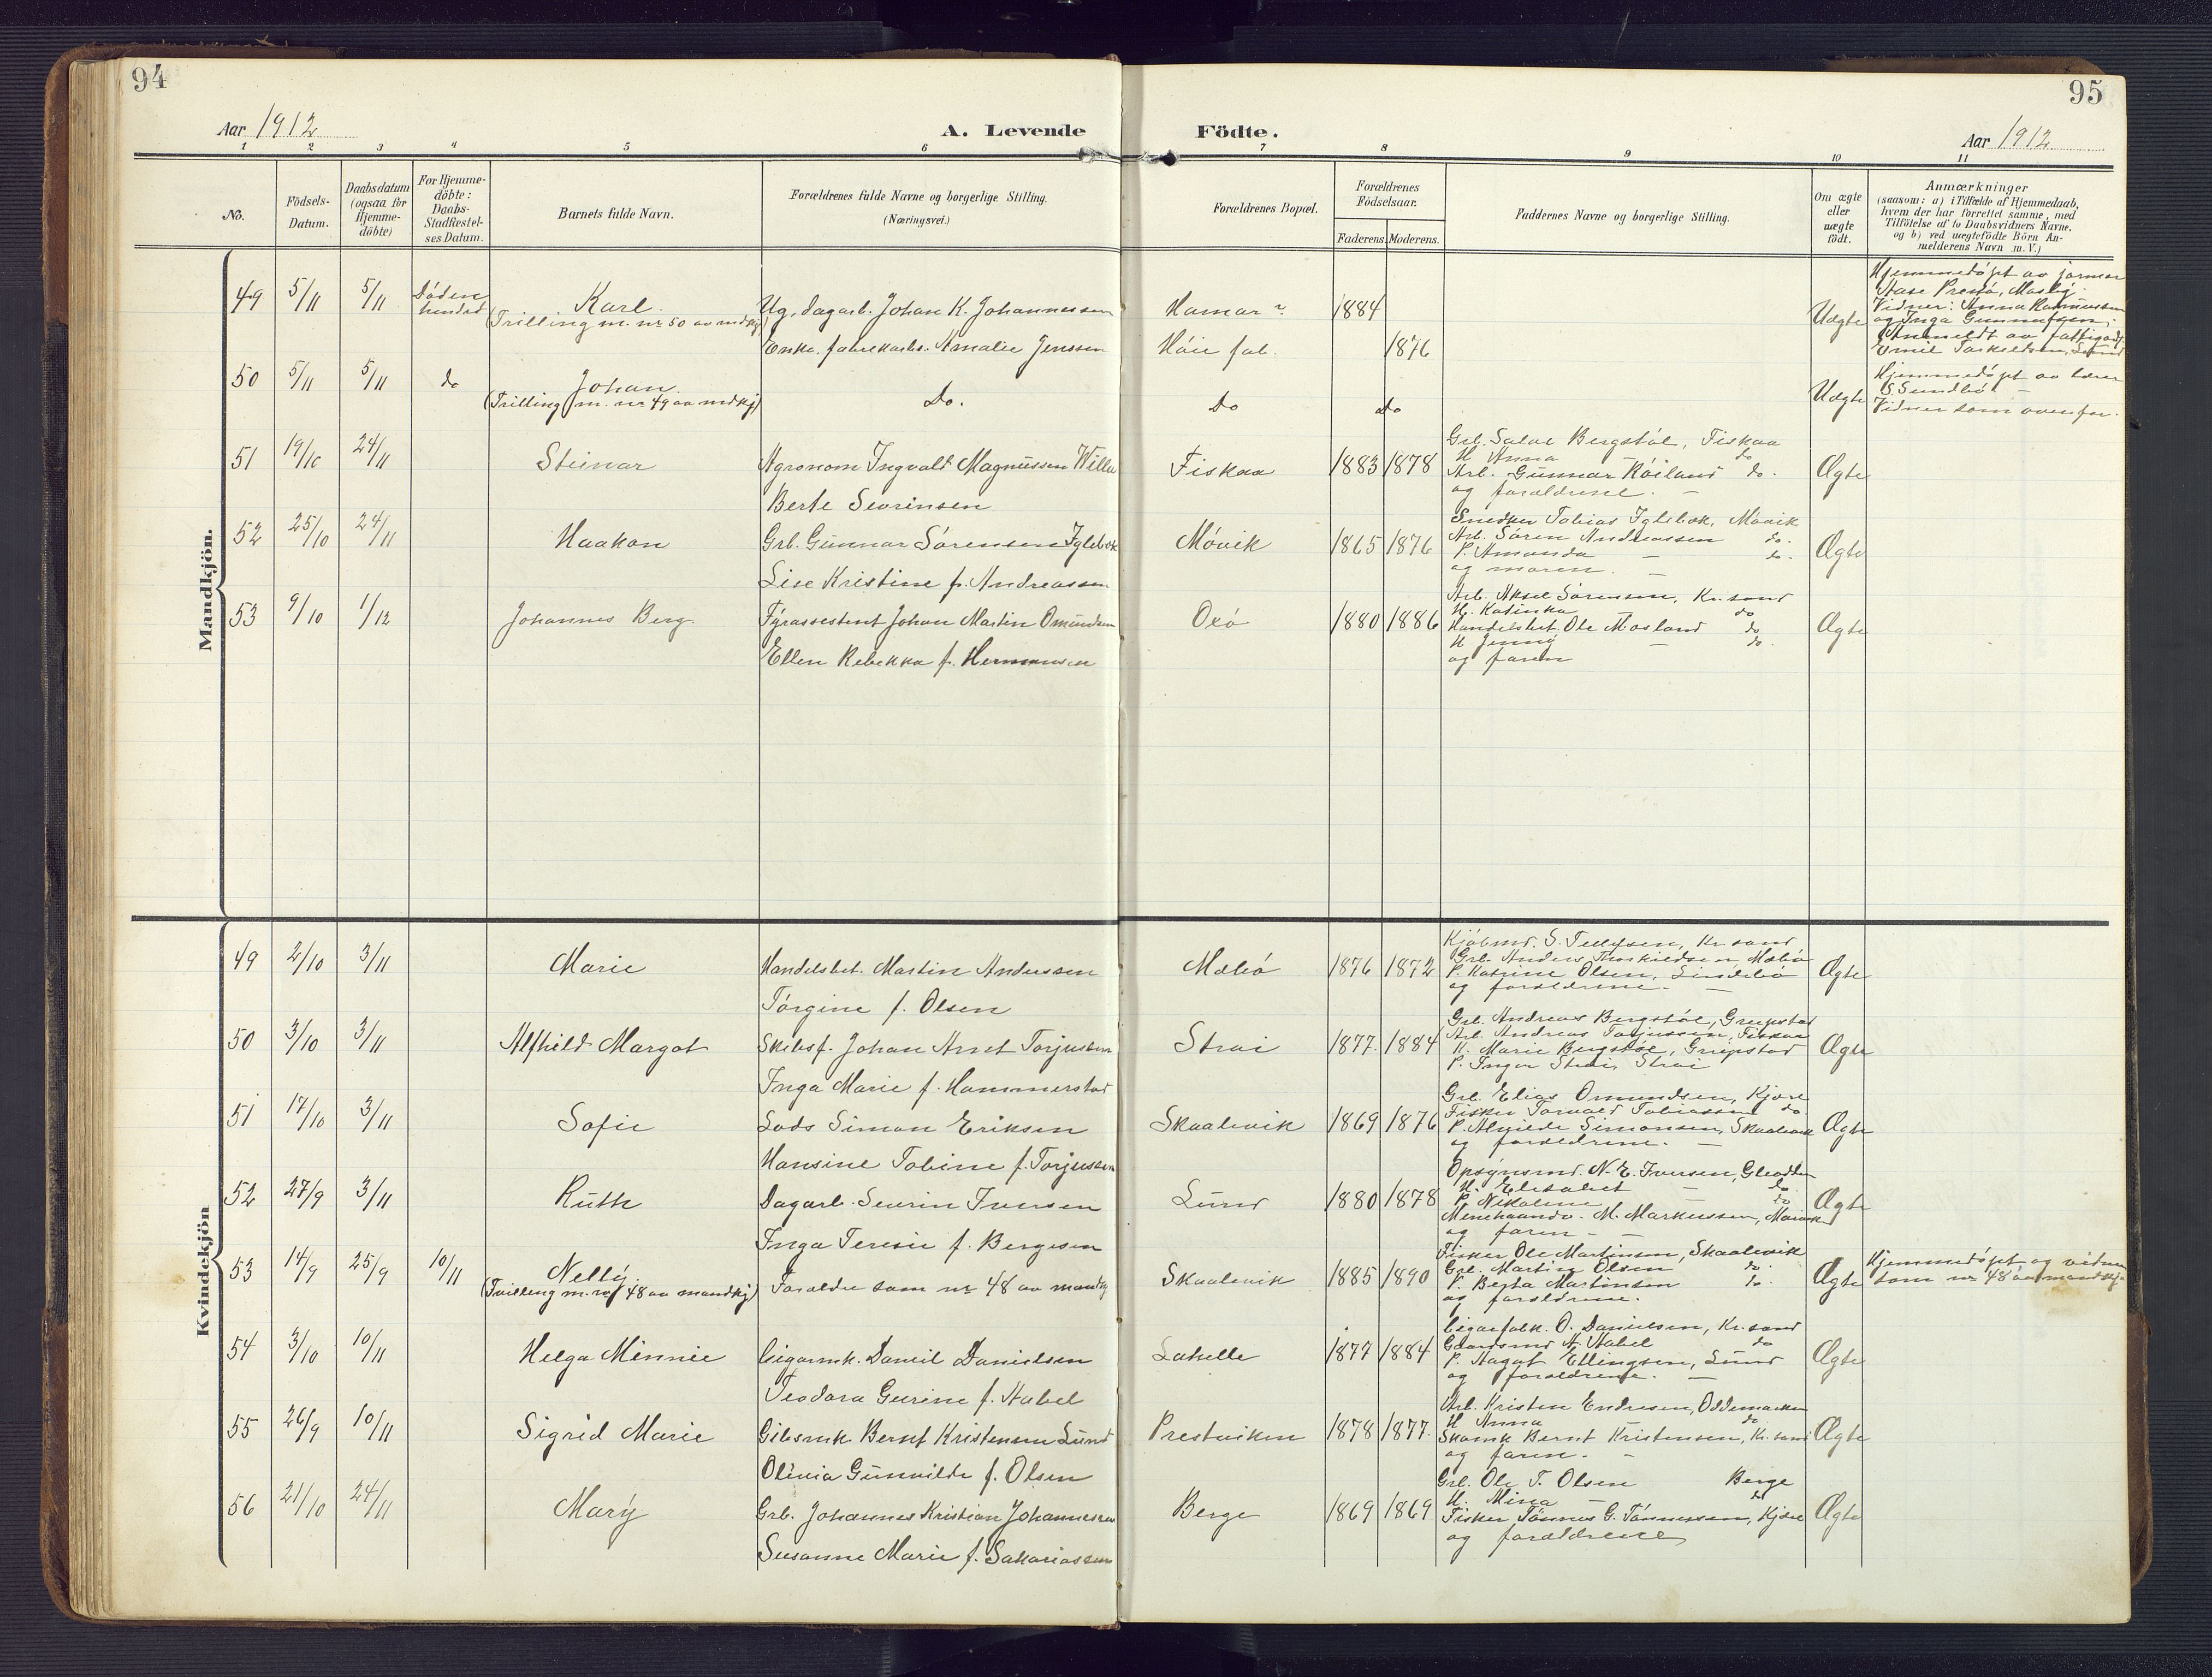 94
95
Aar 1912
A. Levende
Födte.
Aar 1912
1 2 3 4 5 6 7 8 9 10 11
No.
Födsels-Datum.
Daabsdatum (ogsaa for Hjemme-döbte)
For Hjemme-döbte: Daabs-Stadfæstel-ses Datum.
Barnets fulde Navn.
Forældrenes fulde Navne og borgerlige Stilling.
(Næringsvei.)
Forældrenes Bopæl.
Forældrenes Födselsaar.
Faderens. Moderens.
Faddernes Navne og borgerlige Stilling.
Om ægte eller uægte födt.
Anmærkninger
(saasom: a) i Tilfælde af Hjemmedaab, hvem der har forrettet samme, med Tilföielse af to Daabsvidners Navne, og b) ved uægtefödte Börn An-melderens Navn m. V.)
Mandkjön.
49 5/11 5/11 Døden hindred Karl. Ug. dagarb. Johan K. Johannessen Hamar ? 1884 Uægte
(Trilling m. nr 50 av mdkj) Enke, fabrikarb. Amalie Jenssen Höie fab. 1876
Hjemmedöpt av jormor
Aase Presö, Mosby.
Vidner: Anna Rasmussen
og Inga Gunnufsen.
Anmeldt av fattigacs
Emil Torkelsen, Lund
50 5/11 5/11 do Johan Do. Do do Uægte
(Trilling m. nr 49 av mdkj)
Hjemmedöpt av lærer
S. Sundbö –
Vidner som ovenfor.
51 19/10 24/11 Steinar Agronom Ingvald Magnussen Fiskaa 1883 1878 Ægte
Berte Severinsen
Grb. Salve Bergstöl, Fiskaa
H Anna do
Arb. Gunnar Röiland do.
og forældrene. –
52 25/10 24/11 Haakon Grb. Gunnar Sörensen Iglebæk Mövik 1865 1876 Ægte
Lise Kristine f. Andreassen
Snedker Tobias Iglebæk, Mövik
Arb. Sören Andreassen do.
P. Amanda – do.
og moren. –
53 9/10 1/12 Johannes Berg. Fyrassestent Johan Martin Omundsen Oxö 1880 1886 Ægte
Ellen Rebekka f. Hermansen
Arb. Aksel Sörensen, Kr.sand
H. Katinka do
Handelsbet. Ole Mosland do
H Jenny – do.
og faren
Kvindekjön
49 2/10 3/11 Marie Handelsbet. Martin Anderssen Mæbö 1876 1872 Ægte
Törgine f. Olsen
Kjöbmd. S. Tellefsen, Kr.sand
Grb. Anders Torkildsen Mæbö
P. Katrine Olsen, Lindebö
og forældrene. –
50 3/10 3/11 Alfhild Margot Skibsf. Johan Arnt Torjussen Strai 1877. 1884 Ægte
Inga Marie f. Hammerstad
Grb. Andreas Bergstöl, Greipstad
Arb. Andreas Torjussen, Fiskaa
H. Marie Bergstöl, Greipstad
P. Inger Strai, Strai
51 17/10 3/11 Sofie Lods Simon Eriksen Skaalevik 1869 1876 Ægte
Hansine Tobine f. Torjussen
Grb. Elias Omundsen, Kjöre
Fisker Torvald Tobiassen do.
P. Alvilde Simonsen, Skaalevik
og forældrene. –
52 27/9 3/11 Ruth Dagarb. Severin Iversen Lund 1880 1878 Ægte
Inga Teresie f. Bergesen
Opsynsmd. N. E. Iversen, Gleodden
H. Elisabet – do
P. Nikoline do
M. Markussen,
og faren –
53 14/9 25/9 10/11 Nelly Forældre som nr 48 av mandkj Skaalevik 1885 1890 Ægte
(Tvilling m. nr 48 av mandkj)
Fisker Ole Martinsen, Skaalevik
Grb. Martin Olsen do.
P. Berta Martinsen do.
og forældrene.
Hjemmedöpt og vidner
som nr 48 av mandkj.
54 3/10 10/11 Helga Minnie Cigarmk. Daniel Danielsen Lahelle 1877 1884 Ægte
Teodora Gurine f. Aabel
Cigarfabk. O. Danielsen, Kr.sand
Gaardsmd A. Aabel do
P. Aagot Ellingsen, Lund
og forældrene. –
55 26/9 10/11 Sigrid Marie Gibsmk. Bernt Kristensen Lund Prestviken 1878 1877. Ægte
Olivia Gunvilde f. Olsen
Arb. Kristen Endresen, Oddemarken
H Anna do.
Skomk Bernt Kristensen, Kr.sand
og faren. –
56 21/10 24/11 Mary Grb. Johannes Kristian Johannessen Berge 1869 1869 Ægte
Susanne Marie f. Sakariassen
Grb. Ole T. Olsen Berge
H. Mina – do
Fisker Tönnes G. Tönnessen, Kjöre
og forældrene